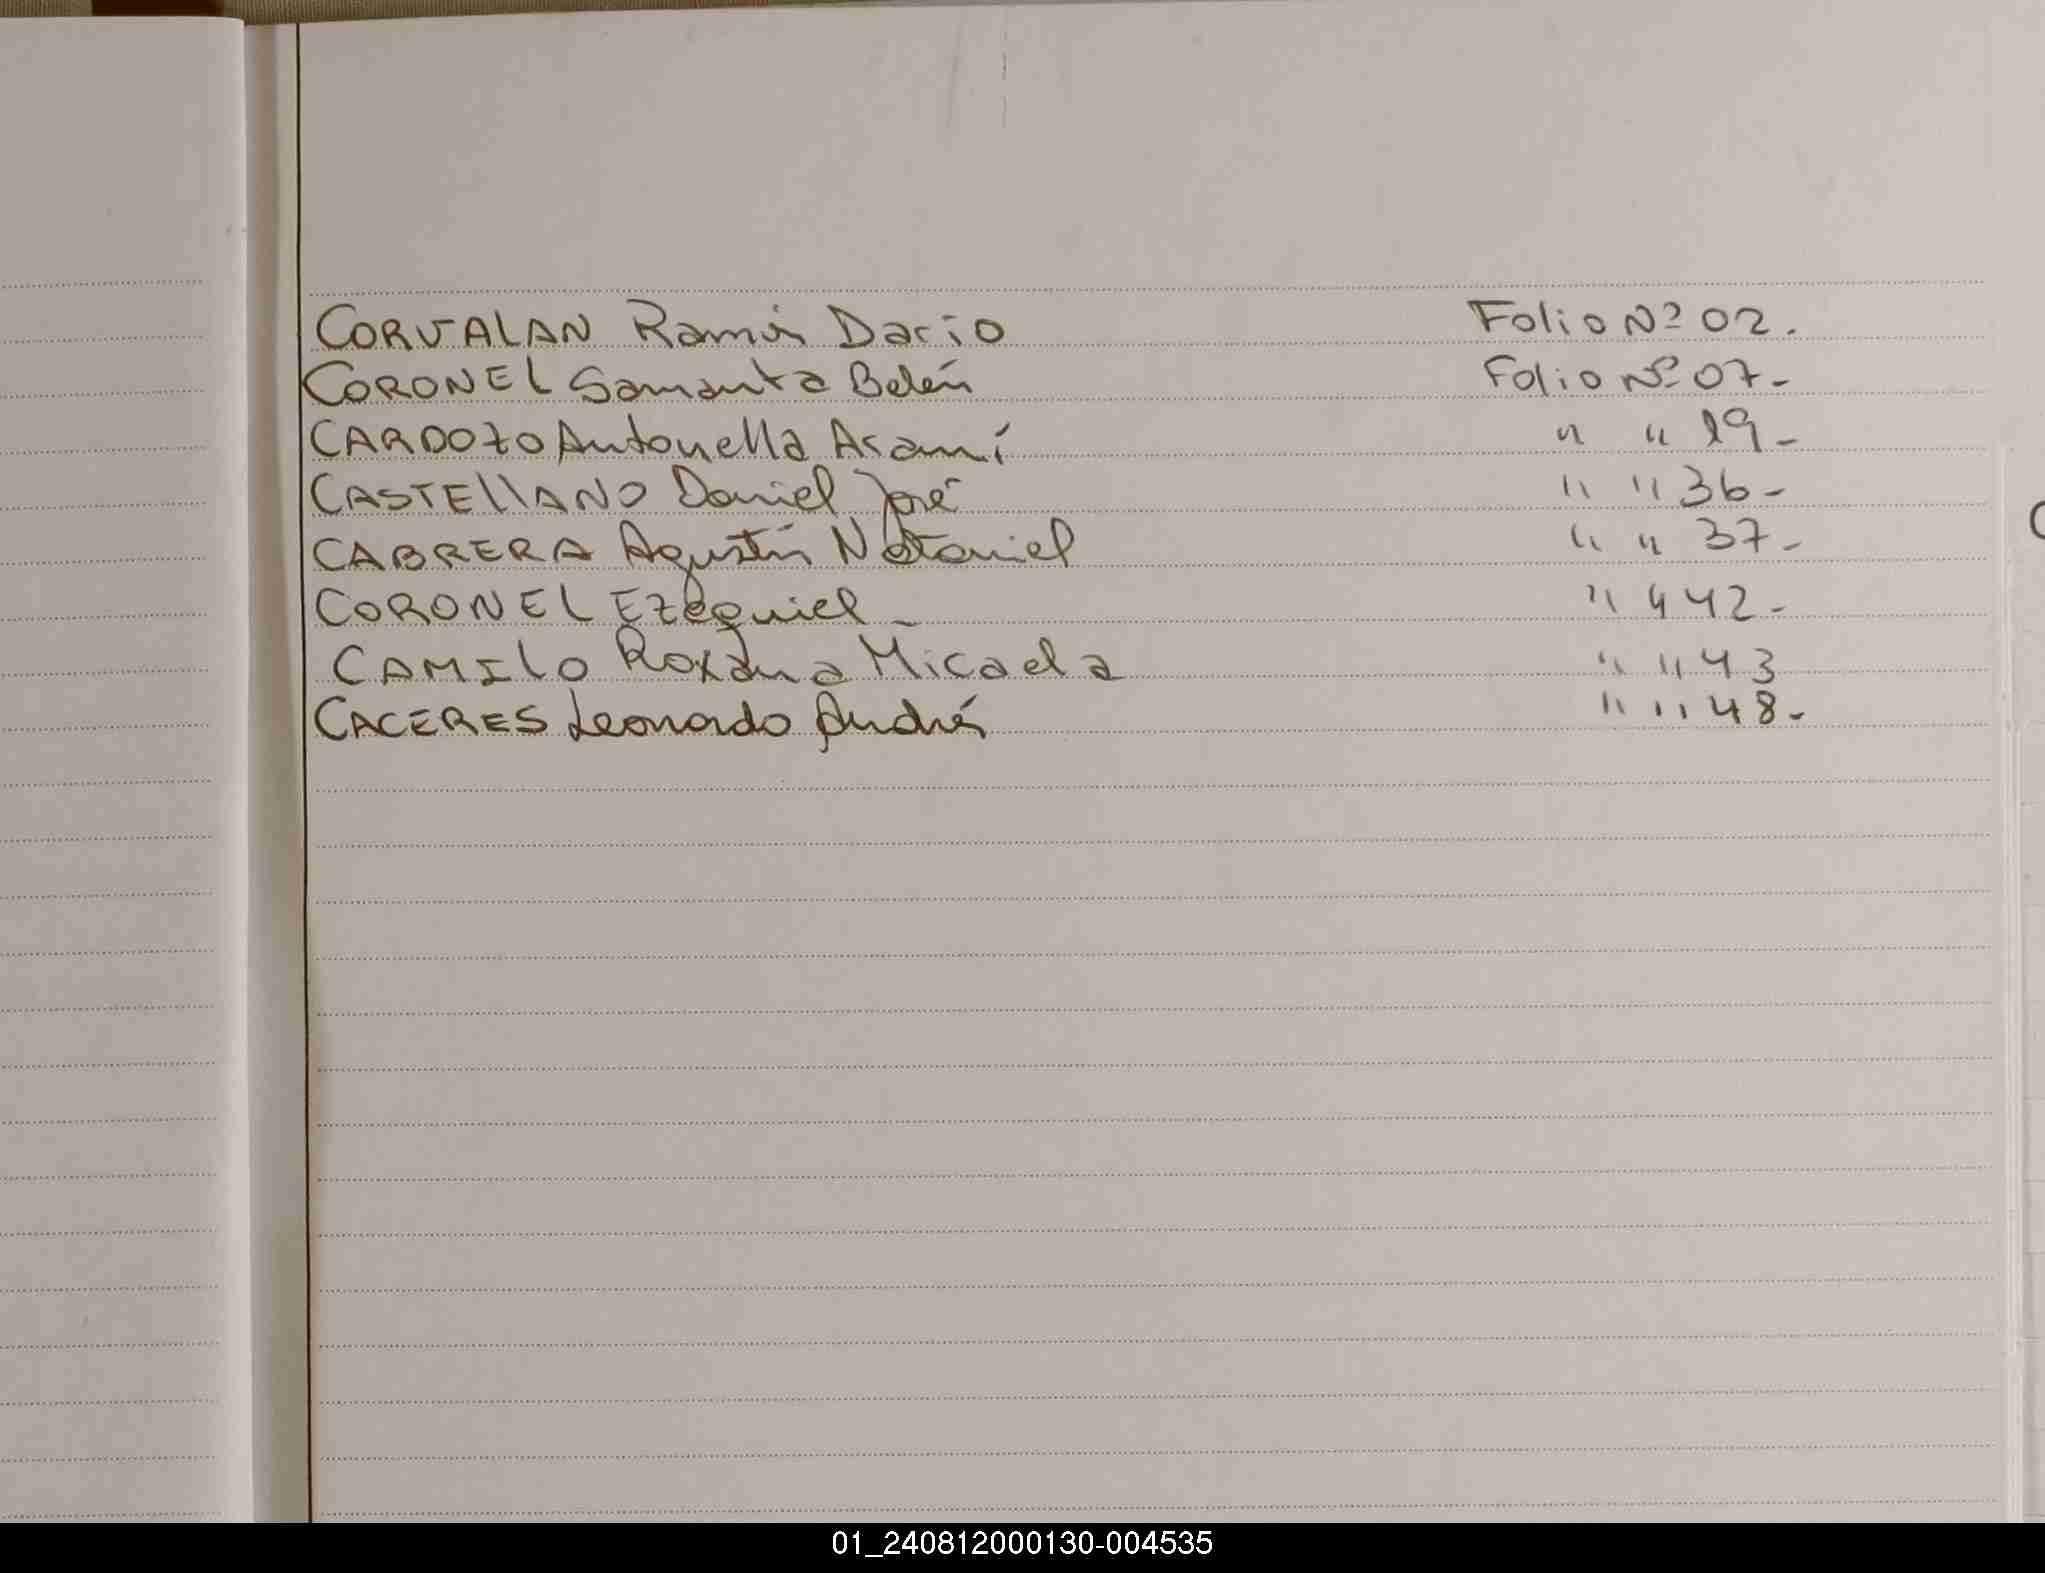 CORVALAN Ramón Darío Folio Nº 02.
CORONEL Samanta Belén Folio Nº 07-
CARDOZO Antonella Asamí " " 19-
CASTELLANO Daniel José " " 36-
CABRERA Agustín Nataniel " " 37-
CORONEL Ezequiel - " " 42-
CAMILO Roxana Micaela " " 43
CACERES Leonardo Andrés " " 48-
01_240812000130-004535